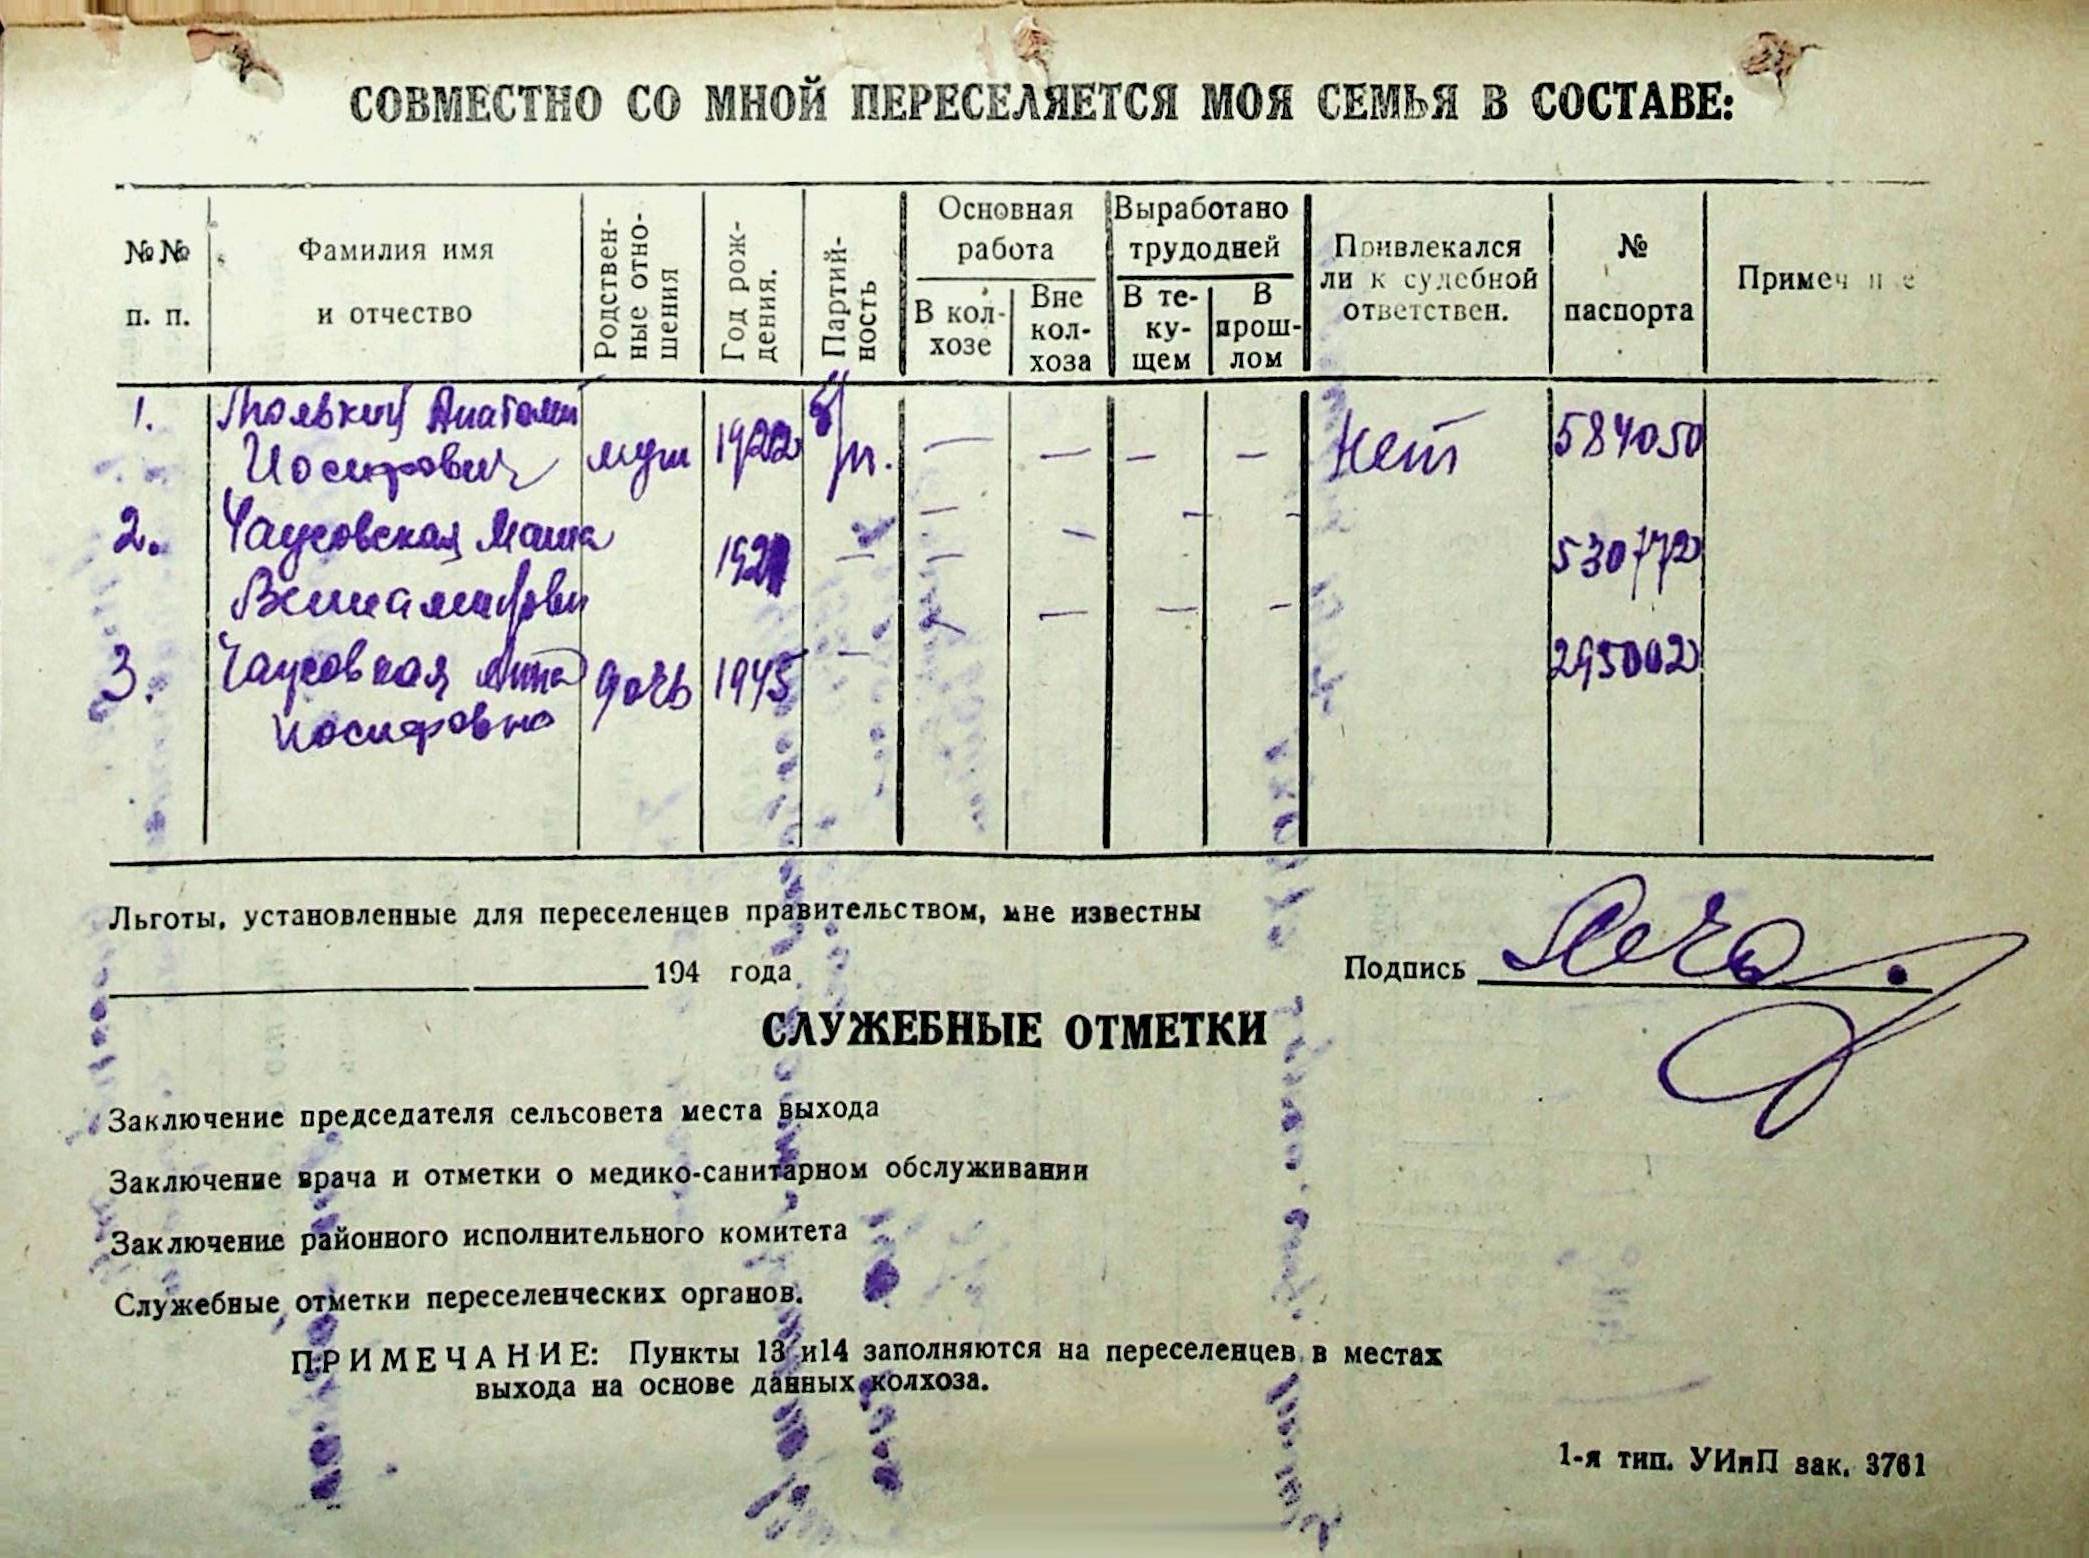 СОВМЕСТНО СО МНОЙ ПЕРЕСЕЛЯЕТСЯ МОЯ СЕМЬЯ В СОСТАВЕ:
№№ п. п.
Фамилия имя и отчество
Родствен-ные отно-шения
Год рож-дения.
Партий-ность
Основная работа
В кол-хозе
Вне кол-хоза
Выработано трудодней
В те-ку-щем
В прош-лом
Привлекался ли к судебной ответствен.
№ паспорта
Примеч н е
1. Анатолий
Иосифович муж 1922 б/п. — — — — Нет 584050
2. Чаусовская Маша
192 — — — — — 530772
3. Чаусовская
Иосифовна дочь 1945 — — — — 295002
Льготы, установленные для переселенцев правительством, мне известны
194 года
Подпись
СЛУЖЕБНЫЕ ОТМЕТКИ
Заключение председателя сельсовета места выхода
Заключение врача и отметки о медико-санитарном обслуживании
Заключение районного исполнительного комитета
Служебные отметки переселенческих органов.
ПРИМЕЧАНИЕ: Пункты 13 и14 заполняются на переселенцев в местах
выхода на основе данных колхоза.
1-я тип. УИиП зак. 3761